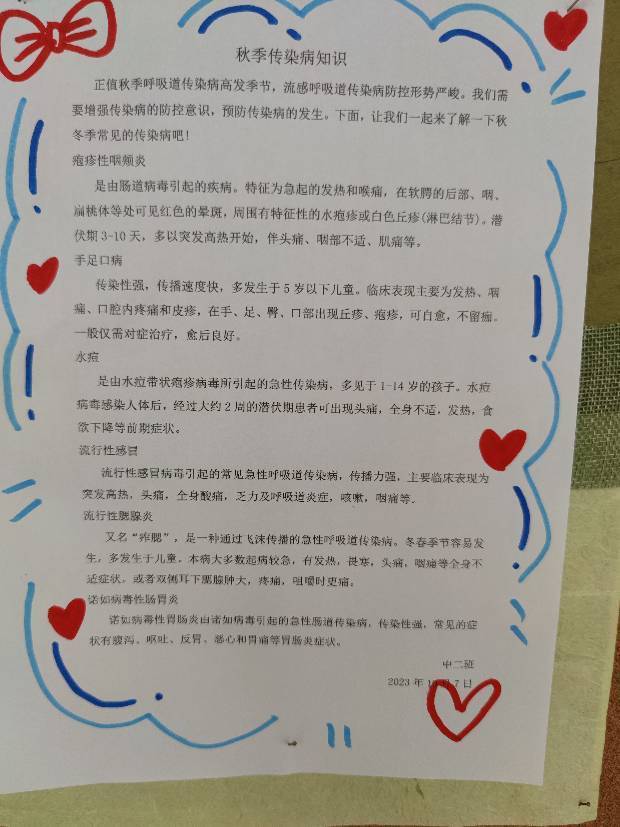 秋季传染病知识
正值秋季呼吸道传染病高发季节，流感呼吸道传染病防控形势严峻。我们需
要增强传染病的防控意识，预防传染病的发生。下面，让我们一起来了解一下秋
冬季常见的传染病吧！
疱疹性咽颊炎
是由肠道病毒引起的疾病。特征为急起的发热和喉痛，在软腭的后部、咽、
扁桃体等处可见红色的晕斑，周围有特征性的水疱疹或白色丘疹(淋巴结节)。潜
伏期 3-10 天，多以突发高热开始，伴头痛、咽部不适、肌痛等。
手足口病
传染性强，传播速度快，多发生于 5 岁以下儿童。临床表现主要为发热、咽
痛、口腔内疼痛和皮疹，在手、足、臀、口部出现丘疹、疱疹，可自愈，不留痂。
一般仅需对症治疗，愈后良好。
水痘
是由水痘带状疱疹病毒所引起的急性传染病，多见于 1-14 岁的孩子。水痘
病毒感染人体后，经过大约 2 周的潜伏期患者可出现头痛，全身不适，发热，食
欲下降等前期症状。
流行性感冒
流行性感冒病毒引起的常见急性呼吸道传染病，传播力强，主要临床表现为
突发高热，头痛，全身酸痛，乏力及呼吸道炎症，咳嗽，咽痛等。
流行性腮腺炎
又名“痄腮”，是一种通过飞沫传播的急性呼吸道传染病。冬春季节容易发
生，多发生于儿童。本病大多数起病较急，有发热，畏寒，头痛，咽痛等全身不
适症状，或者双侧耳下腮腺肿大，疼痛，咀嚼时更痛。
诺如病毒性肠胃炎
诺如病毒性胃肠炎由诺如病毒引起的急性肠道传染病，传染性强，常见的症
状有腹泻、呕吐、反胃、恶心和胃痛等胃肠炎症状。
中二班
2023 年 1 月 7 日